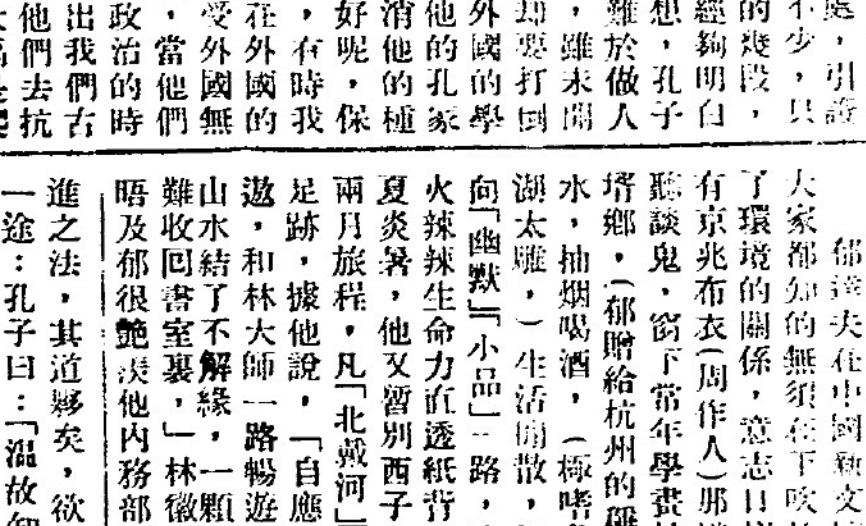 處，引證
不少，只
的幾段，
經夠明白
想，孔子
難於做人
，雖未開
却要打倒
外國的學
他的孔家
消他的種
好呢，保
，有時我
在外國的
受外國無
，當他們
政治的時
出我們古
他們去抗
郁達夫在中國新文
大家都知的無須在下吹
了環境的關係，意志日
有京兆布衣（周作人）那
聽談鬼，窗下常年學畫
壻鄉，（郁贈給杭州的
水，抽烟喝酒，（極嗜
湖太雕，）生活閒散，
向「幽默」「小品」一路，
火辣辣生命力直透紙背
夏炎暑，他又暫別西子
兩月旅程，凡「北戴河」
足跡，據他說，「自應
遨，和林大師一路暢遊
山水結了不解緣，一顆
難收回書室裏，」林徽
晤及郁很艷羨他內務部
進之法，其道夥矣，欲
一途：孔子曰：「溫故